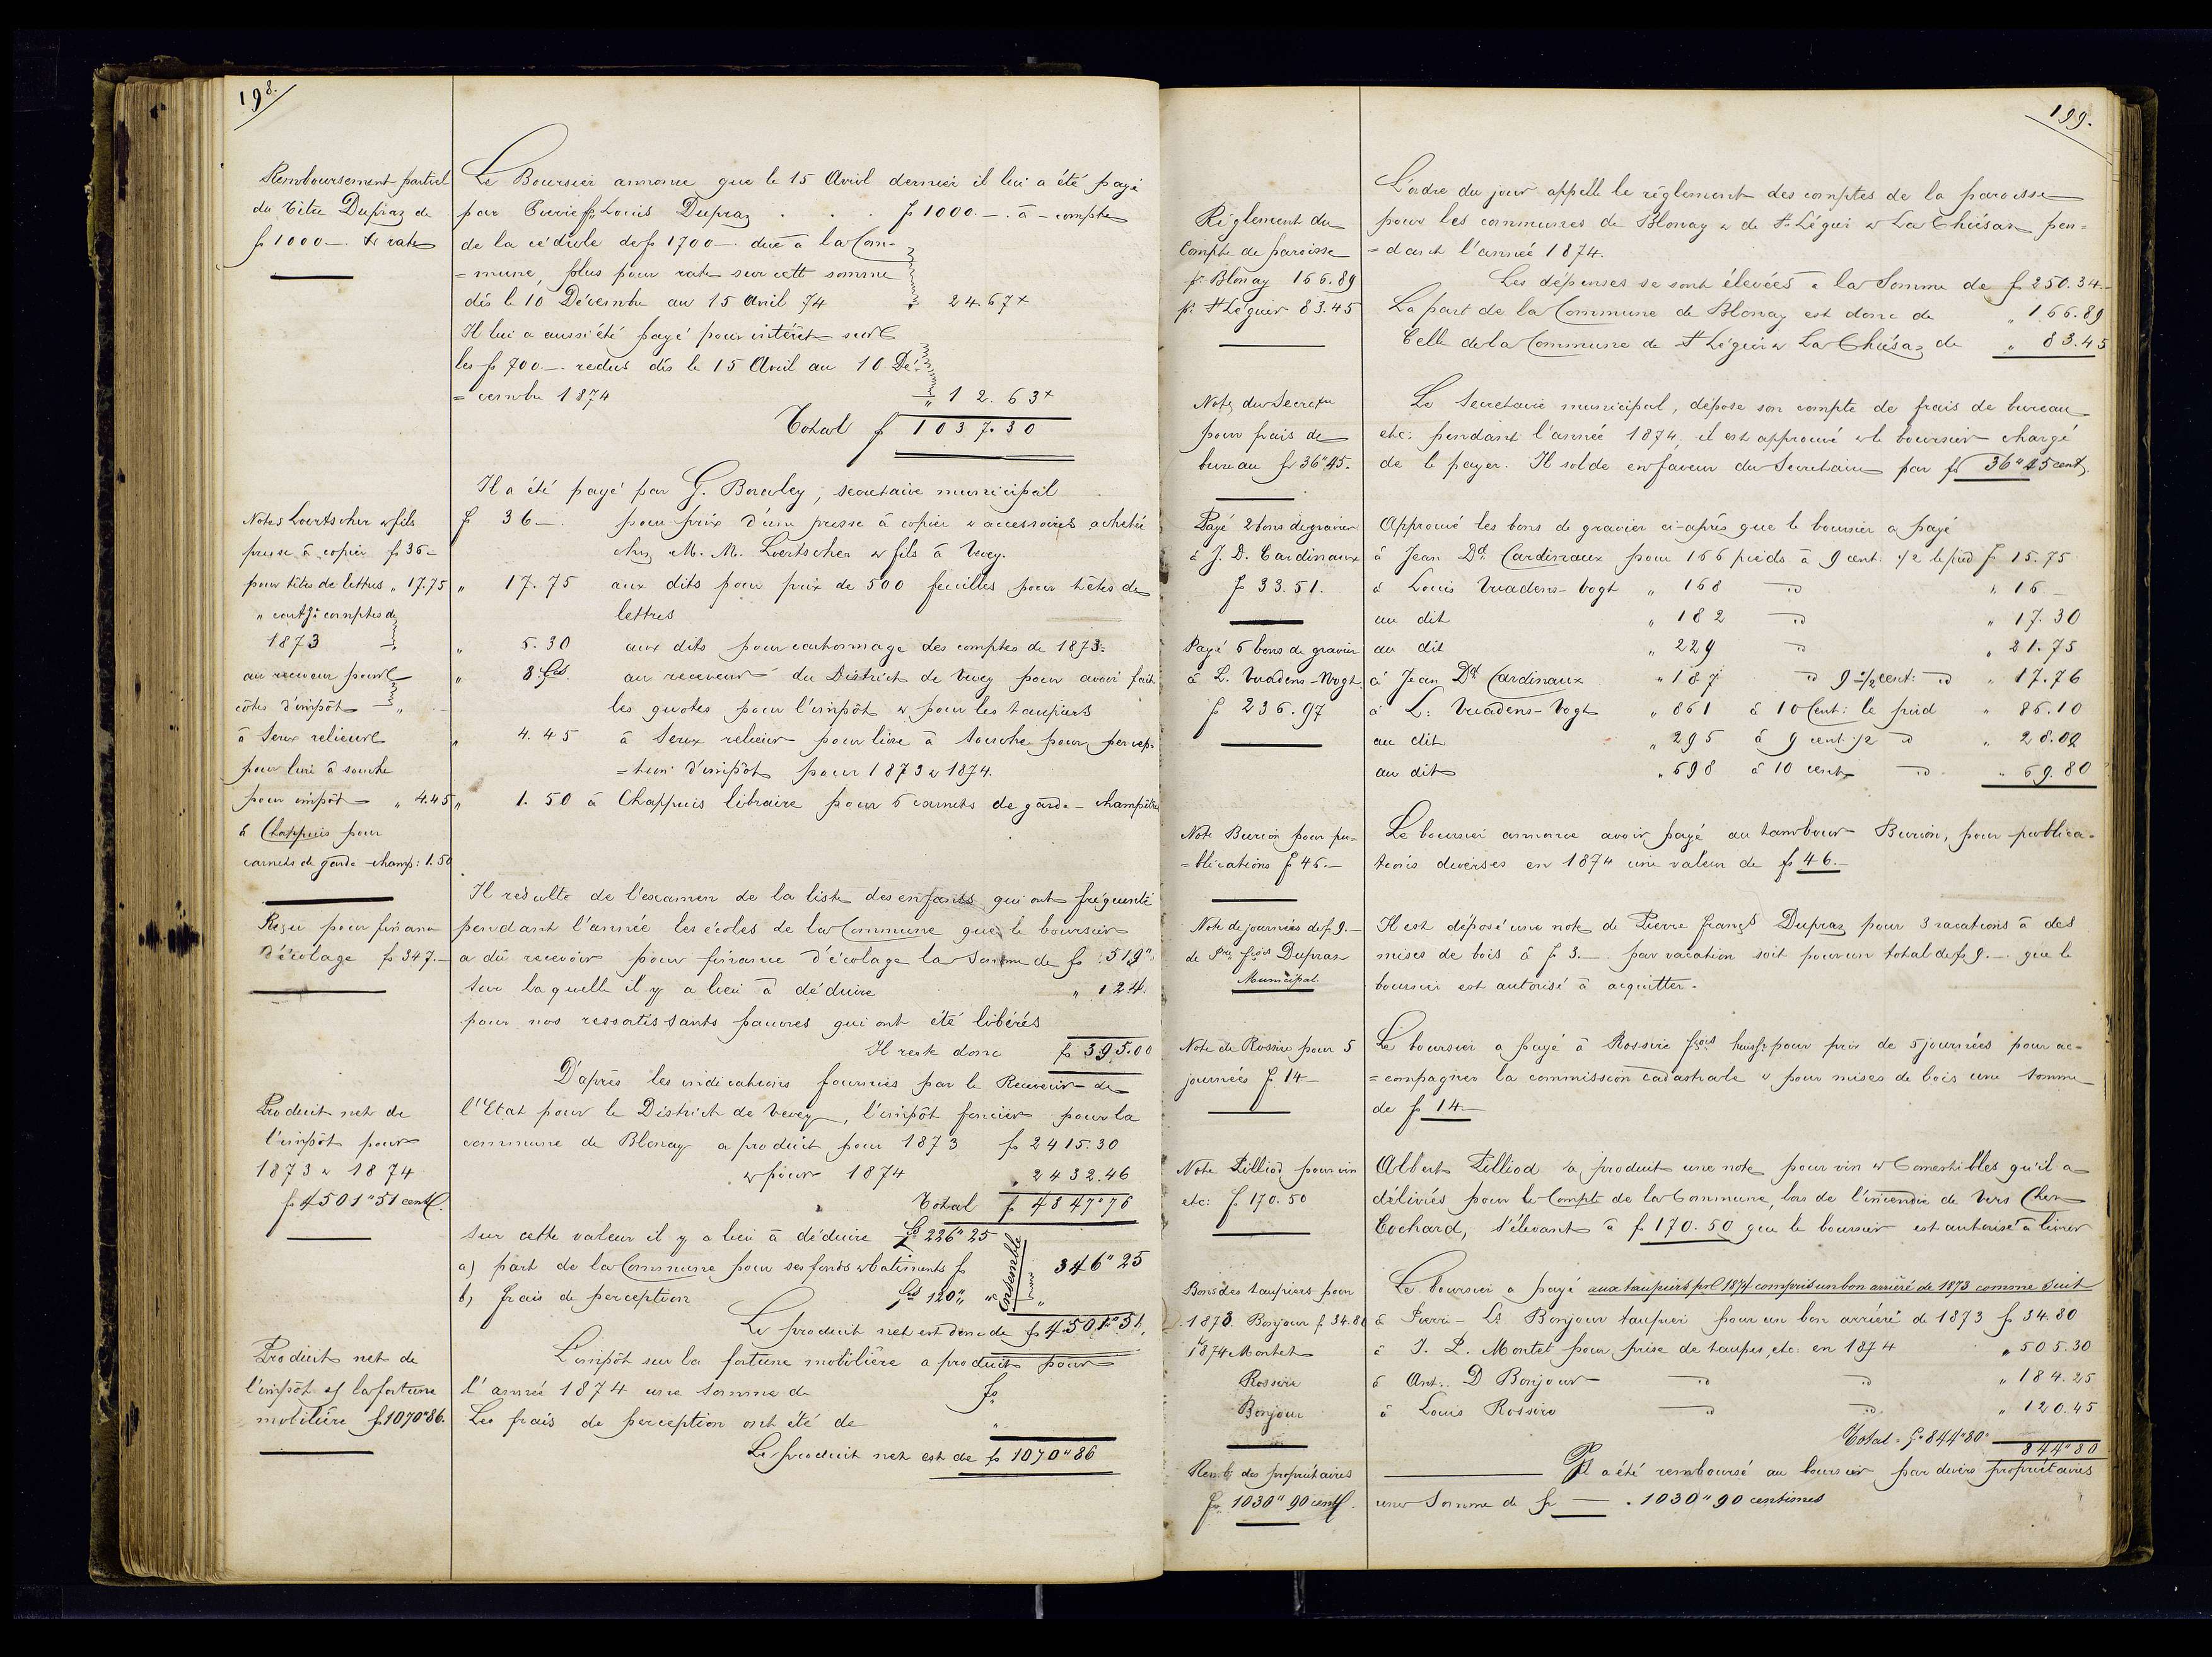 198.
Remboursement partiel
du titre Dupraz de
f 1000 —. & rate
Le Boursier annonce que le 15 Avril dernier il lui a été payé
par Pierre fs Louis Dupraz . . . f 1000. —. à-compte
de la cédule de f 1700 —. due à la Com-
=mune, plus pour rate sur cette somme
dès le 10 Décembre au 15 Avril 74 „ 24.67 x
Il lui a aussi été payé pour intérêt sur
les f 700. —. redus dès le 15 Avril au 10 Dé-
=cembre 1874 „ 12.63 x
Total f 1037.30
Il a été payé par G. Boraley, secretaire municipal
Notes Loertscher & fils
presse à copier f 36 —
pour têtes de lettres „ 17.75
„ cart.ge comptes de
1873
au receveur pour
côtes d'impôt — „
à Seux relieur
pour livre à souche
pour impôt — „ 4.45
à Chappuis pour
carnets de garde-champ: 1.50
f 36 —. pour prix d'une presse à copier & accessoires achetée
chez M. M. Loertscher & fils à Vevey.
„ 17.75 aux dits pour prix de 500 feuilles pour têtes de
lettres
„ 5.30 aux dits pour cartonnage des comptes de 1873.
„ 8 au receveur du District de Vevey pour avoir fait
les quotes pour l'impôt & pour les taupiers
„ 4.45 à Seux relieur pour livre à souche pour percep-
=tion d'impôt pour 1873 & 1874.
„ 1.50 à Chappuis libraire pour 6 carnets de garde-champêtre
Reçu pour finance
d'écolage f 347. —
Il résulte de l'examen de la liste des enfants qui ont fréquenté
pendant l'année les écoles de la Commune que le boursier
a dû recevoir pour finance d'écolage la Somme de f 519 „
sur laquelle il y a lieu à déduire „ 124.
pour nos ressortissants pauvres qui ont été libérés
Il reste donc f 395.00
Produit net de
l'impôt pour
1873 & 1874
f 4501 „ 51 cent.
D'après les indications fournies par le Receveur de
l'Etat pour le District de Vevey, l'impôt foncier pour la
commune de Blonay a produit pour 1873 f 2415.30
& pour 1874 „ 2432.46
Total f 4847 „ 76
sur cette valeur il y a lieu à déduire fs 226 „ 25
a) part de la Commune pour ses fonds & batiments f ensemble 346 „ 25
b) frais de perception fs 120 „ „
Le produit net est donc de f 4501 „ 51.
Produit net de
l'impôt s/ la fortune
mobilière f 1070 „ 86.
L'impôt sur la fortune mobilière a produit pour
l'année 1874 une somme de fs
Les frais de perception ont été de „
Le produit net est de f 1070 „ 86
199.
Réglement du
Compte de paroisse
pr Blonay 166.89
pr St Légier 83.45
L'ordre du jour appelle le réglement des comptes de la paroisse
pour les communes de Blonay & de St Légier & La Chiésaz pen-
=dant l'année 1874.
Les dépenses se sont élevées à la Somme de f 250.34.
La part de la Commune de Blonay est donc de „ 166.89
Celle de la Commune de St Légier & La Chiésaz de „ 83.45
Note du Secretre
pour frais de
bureau f 36 „ 45.
Le Secretaire municipal, dépose son compte de frais de bureau
etc: pendant l'année 1874, il est approuvé & le boursier chargé
de le payer. Il solde en faveur du Secretaire par f 36 „ 45 cent.
Payé 2 bons de gravier
à J. D. Cardinaux
f 33.51.
Payé 6 bons de gravier
à L. Vuadens-Vogt
f 236.97
Approuvé les bons de gravier ci-après que le boursier a payé
à Jean Dd Cardinaux pour 166 pieds à 9 cent. 1/2 le pied f 15.75
à Louis Vuadens-Vogt „ 168 — „ 16 —
au dit „ 182 — „ 17.30
au dit „ 229 — „ 21.75
à Jean Dd Cardinaux „ 187 9 1/2 cent: „ 17.76
à L: Vuadens-Vogt „ 861 à 10 Cent: le pied „ 86.10
au dit „ 295 à 9 cent 1/2 „ 28.02
au dit „ 698 à 10 cent „ 69.80
Note Burion pour pu-
=blications f 46. —
Le boursier annonce avoir payé au tambour Burion, pour publica-
tions diverses en 1874 une valeur de f 46. —
Note de journées de f 9. —
de Pre fçois Dupraz
Municipal.
Il est déposé une note de Pierre franç̧s Dupraz pour 3 vacations à des
mises de bois à f 3. —. par vacation soit pour un total de f 9. —. que le
boursier est autorisé à acquitter.
Note de Rossire pour 5
journées f 14 —
Le boursier a payé à Rossire fçois huissr pour prix de 5 journées pour ac-
=compagner la commission cadastrale & pour mises de bois une somme
de f 14 —
Note Pilliod pour vin
etc: f 170.50
Albert Pilliod a produit une note pour vin & Comestibles qu'il a
délivrés pour le Compte de la Commune, lors de l'incendie de Vers Chez
Cochard, s'élevant à f 170.50 que le boursier est autorisé à livrer
Bons des taupiers pour
1873. Bonjour f 34.80
1874 Montet
Rossire
Bonjour
Le boursier a payé aux taupiers pr 1874 compris un bon arriéré de 1873 comme suit
à Pierre-Ls Bonjour taupier pour un bon arriéré de 1873 f 34.80
à J. P. Montet pour prise de taupes, etc. en 1874 „ 505.30
à Ant: D Bonjour — „ 184.25
à Louis Rossire — „ 120.45
Total fs 844 „ 80 844 „ 80
Remb. des propriétaires
fs 1030 „ 90 cent.
Il a été remboursé au boursier par divers propriétaires
une Somme de fr — . 1030 „ 90 centimes